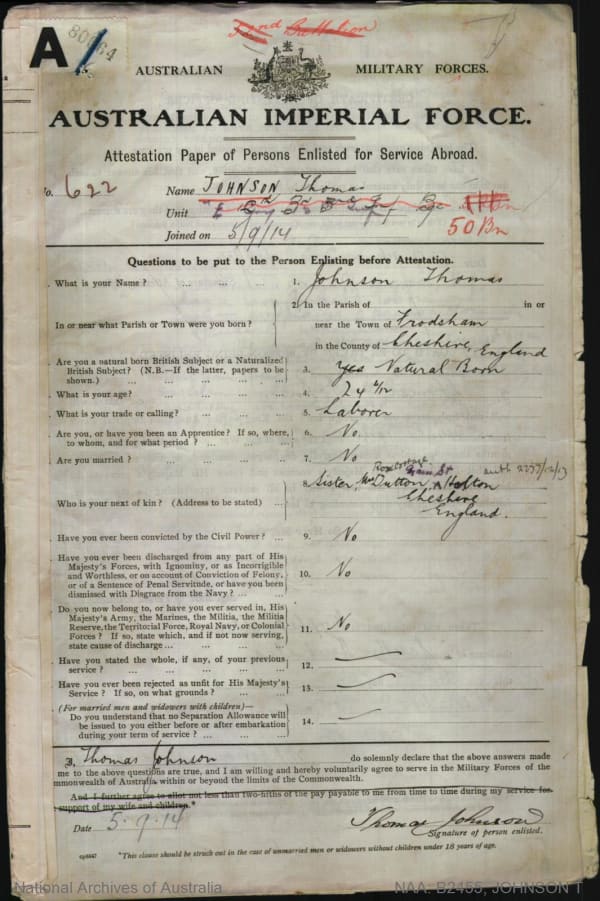 2nd Battalion
A
AUSTRALIAN MILITARY FORCES.
AUSTRALIAN IMPERIAL FORCE.
Attestation Paper of Persons Enlisted for Service Abroad.
o. 622
Name JOHNSON Thomas
Unit
50 Bn
Joined on 5/9/14
Questions to be put to the Person Enlisting before Attestation.
. What is your Name? ... ... ... 1. Johnson Thomas
2. In the Parish of in or
In or near what Parish or Town were you born? near the Town of Frodsham
in the County of Cheshire, England
. Are you a natural born British Subject or a Naturalized
British Subject? (N.B.—If the latter, papers to be 3. Yes Natural Born
shown.) ... ... ... ... ...
. What is your age? ... ... ... ... 4. 24
. What is your trade or calling? ... ... ... 5. Laborer
. Are you, or have you been an Apprentice? If so, where, 6. No
to whom, and for what period? ... ... ...
. Are you married? ... ... ... ... 7. No
8. Sister, Mrs Dutton, Halton
Who is your next of kin? (Address to be stated) ... Cheshire
England.
. Have you ever been convicted by the Civil Power? ... 9. No
. Have you ever been discharged from any part of His
Majesty's Forces, with Ignominy, or as Incorrigible
and Worthless, or on account of Conviction of Felony, 10. No
or of a Sentence of Penal Servitude, or have you been
dismissed with Disgrace from the Navy? ... ...
Do you now belong to, or have you ever served in, His
Majesty's Army, the Marines, the Militia, the Militia
Reserve, the Territorial Force, Royal Navy, or Colonial 11. No
Forces? If so, state which, and if not now serving,
state cause of discharge ... ... ... ...
. Have you stated the whole, if any, of your previous 12. —
service? ... ... ... ... ...
. Have you ever been rejected as unfit for His Majesty's 13. —
Service? If so, on what grounds? ... ...
. (For married men and widowers with children)—
Do you understand that no Separation Allowance will 14. —
be issued to you either before or after embarkation
during your term of service? ... ... ...
I, Thomas Johnson do solemnly declare that the above answers made
me to the above questions are true, and I am willing and hereby voluntarily agree to serve in the Military Forces of the
mmonwealth of Australia within or beyond the limits of the Commonwealth.
And I further agree to allot not less than two-fifths of the pay payable to me from time to time during my service for
support of my wife and children.*
Date 5.9.14 Thomas Johnson
Signature of person enlisted.
*This clause should be struck out in the case of unmarried men or widowers without children under 18 years of age.
National Archives of Australia NAA: B2455, JOHNSON T